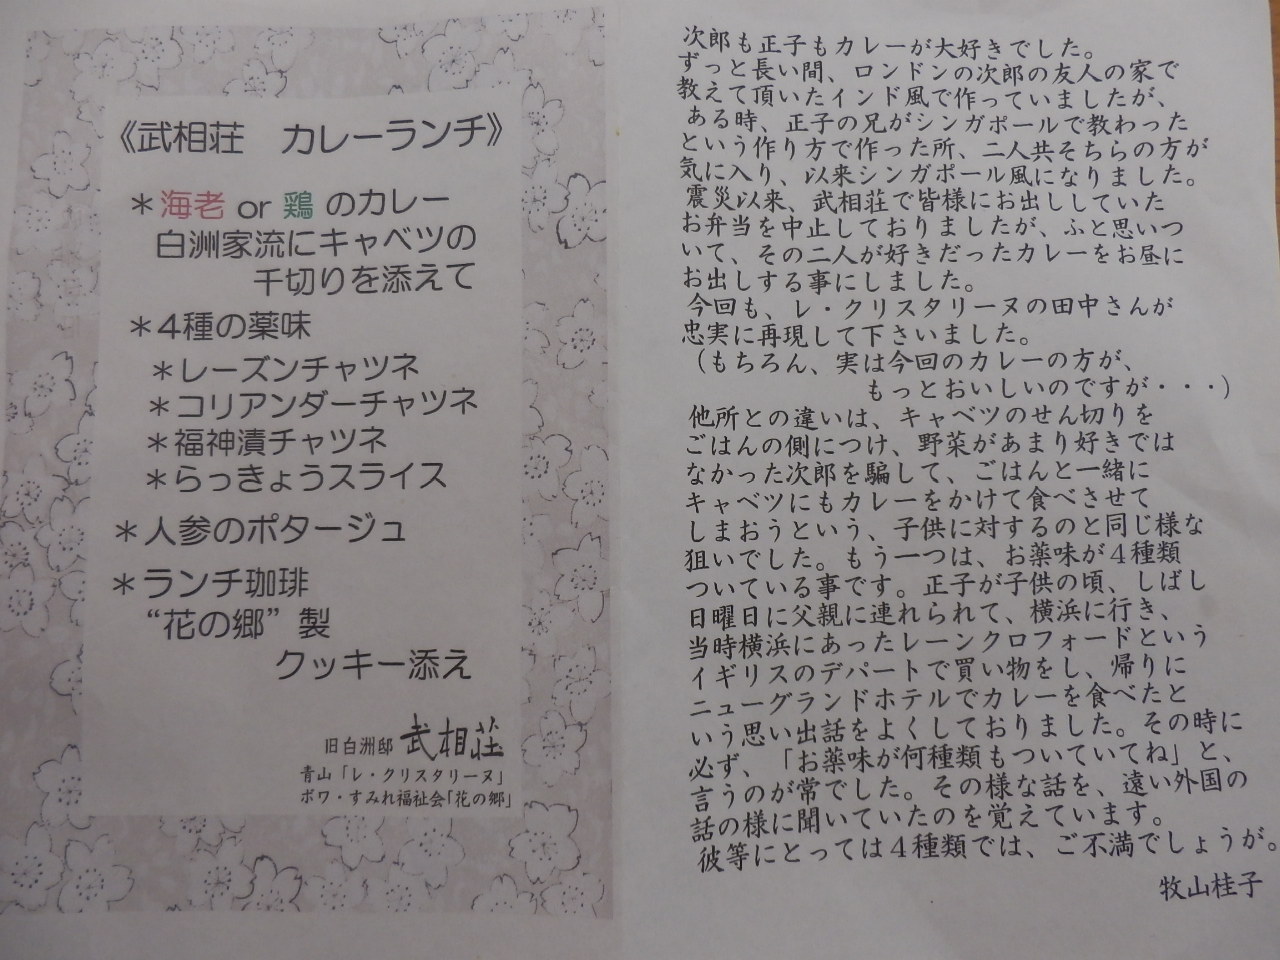 《武相荘　カレーランチ》
＊海老 or 鶏 のカレー
白洲家流にキャベツの
千切りを添えて
＊4種の薬味
＊レーズンチャツネ
＊コリアンダーチャツネ
＊福神漬チャツネ
＊らっきょうスライス
＊人参のポタージュ
＊ランチ珈琲
“花の郷” 製
クッキー添え
旧白洲邸 武相荘
青山「レ・クリスタリーヌ」
ボワ・すみれ福祉会「花の郷」
次郎も正子もカレーが大好きでした。
ずっと長い間、ロンドンの次郎の友人の家で
教えて頂いたインド風で作っていましたが、
ある時、正子の兄がシンガポールで教わった
という作り方で作った所、二人共そちらの方が
気に入り、以来シンガポール風になりました。
震災以来、武相荘で皆様にお出ししていた
お弁当を中止しておりましたが、ふと思いつ
いて、その二人が好きだったカレーをお昼に
お出しする事にしました。
今回も、レ・クリスタリーヌの田中さんが
忠実に再現して下さいました。
（もちろん、実は今回のカレーの方が、
もっとおいしいのですが・・・）
他所との違いは、キャベツのせん切りを
ごはんの側につけ、野菜があまり好きでは
なかった次郎を騙して、ごはんと一緒に
キャベツにもカレーをかけて食べさせて
しまおうという、子供に対するのと同じ様な
狙いでした。もう一つは、お薬味が４種類
ついている事です。正子が子供の頃、しばし
日曜日に父親に連れられて、横浜に行き、
当時横浜にあったレーンクロフォードという
イギリスのデパートで買い物をし、帰りに
ニューグランドホテルでカレーを食べたと
いう思い出話をよくしておりました。その時に
必ず、「お薬味が何種類もついていてね」と、
言うのが常でした。その様な話を、遠い外国の
話の様に聞いていたのを覚えています。
彼等にとっては４種類では、ご不満でしょうが。
牧山桂子